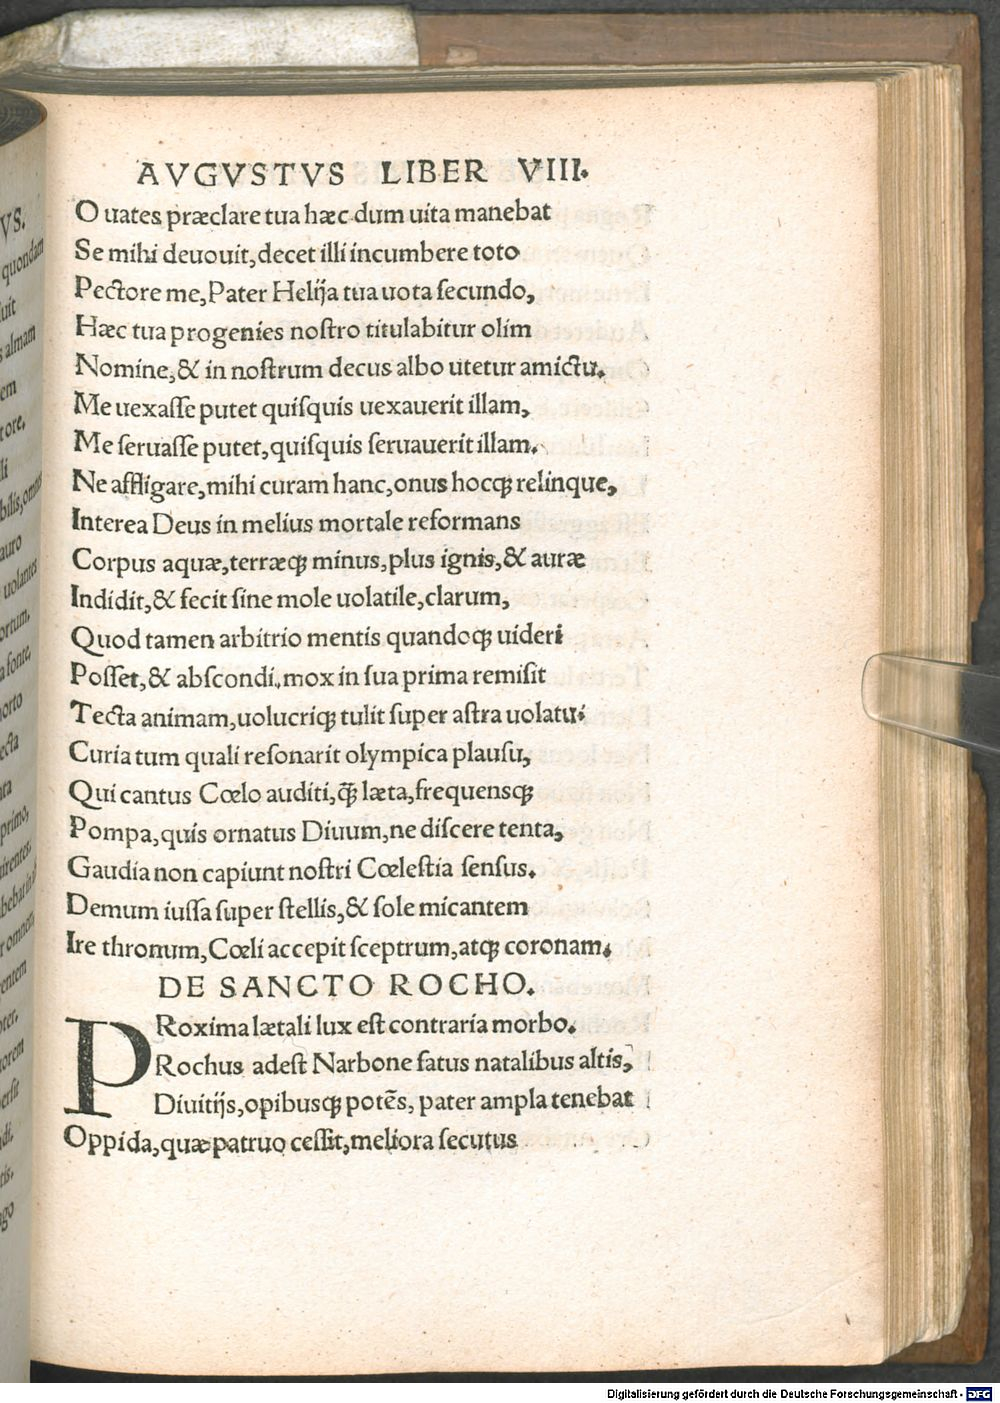 AVGVSTVS LIBER VIII.
O uates præclare tua hæc dum uita manebat
Se mihi deuouit, decet illi incumbere toto
Pectore me, Pater Helija tua uota secundo,
Hæc tua progenies nostro titulabitur olim
Nomine, & in nostrum decus albo utetur amictu.
Me uexasse putet quisquis uexauerit illam,
Me seruasse putet, quisquis seruauerit illam.
Ne affligare, mihi curam hanc, onus hocq́; relinque,
Interea Deus in melius mortale reformans
Corpus aquæ, terræq́; minus, plus ignis, & auræ
Indidit, & fecit sine mole uolatile, clarum,
Quod tamen arbitrio mentis quandoq́; uideri
Posset, & abscondi, mox in sua prima remisit
Tecta animam, uolucriq́; tulit super astra uolatu:
Curia tum quali resonarit olympica plausu,
Qui cantus Cœlo auditi, q̃ læta, frequensq́;
Pompa, quis ornatus Diuum, ne discere tenta,
Gaudia non capiunt nostri Cœlestia sensus.
Demum iussa super stellis, & sole micantem
Ire thronum, Cœli accepit sceptrum, atq́; coronam.
DE SANCTO ROCHO.
PRoxima lætali lux est contraria morbo.
Rochus adest Narbone satus natalibus altis,
Diuitijs, opibusq́; potẽs, pater ampla tenebat
Oppida, quæ patruo cessit, meliora secutus
VS.
quondam
uit
almam
em
tore,
li
bilis, omnis
auro
uolantes
ortum,
a fonte,
orto
ecta
ata
primo,
omnem
entem
ter.
orem
ersit
di,
tis.
ago
Digitalisierung gefördert durch die Deutsche Forschungsgemeinschaft - DFG